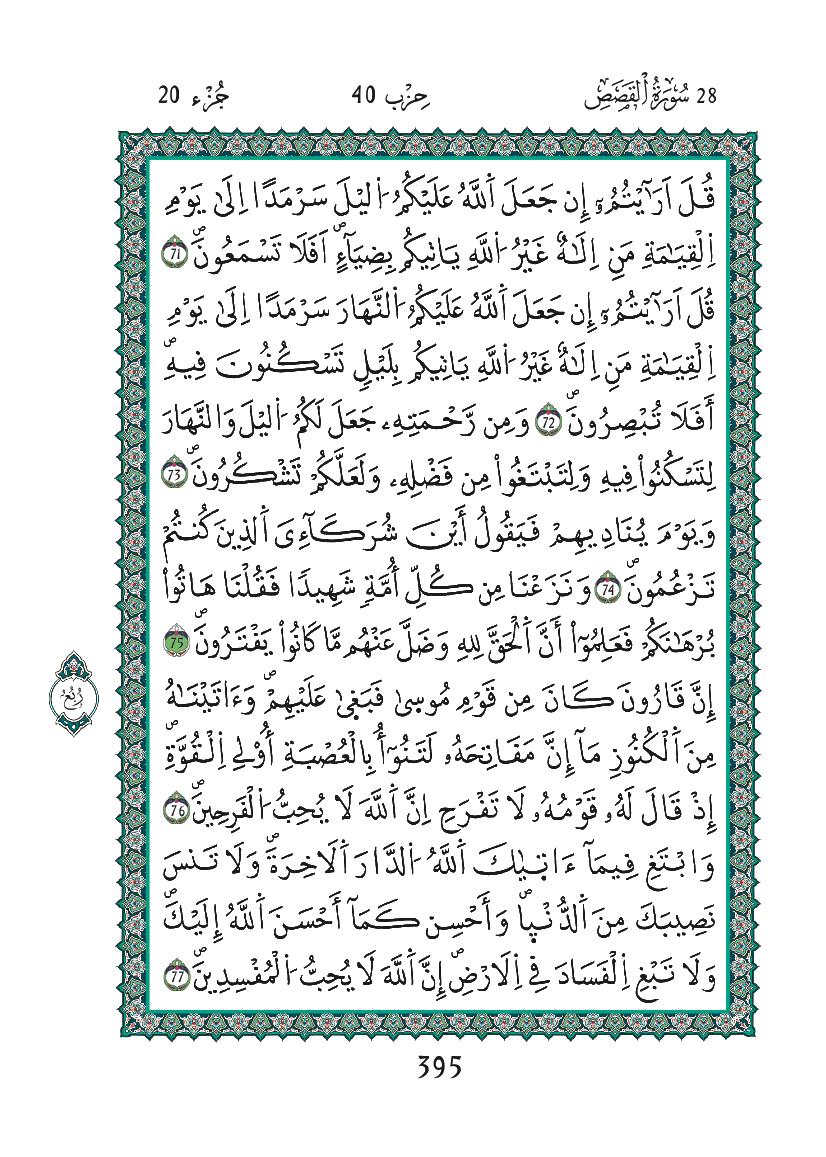 28 سُورَةُ اُ۬لْقَصَصِ حِزْب 40 جُزْء 20
قُلَ اَرَٰٓيْتُمُۥٓ إِن جَعَلَ اَ۬للَّهُ عَلَيْكُمُ اُ۬ليْلَ سَرْمَدًا اِلَىٰ يَوْمِ
اِ۬لْقِيَٰمَةِ مَنِ اِلَٰهٌ غَيْرُ اُ۬للَّهِ يَاتِيكُم بِضِيَآءٍۖ اَفَلَا تَسْمَعُونَۖ 71
قُلَ اَرَٰٓيْتُمُۥٓ إِن جَعَلَ اَ۬للَّهُ عَلَيْكُمُ اُ۬لنَّهَارَ سَرْمَدًا اِلَىٰ يَوْمِ
اِ۬لْقِيَٰمَةِ مَنِ اِلَٰهٌ غَيْرُ اُ۬للَّهِ يَاتِيكُم بِلَيْلٖ تَسْكُنُونَ فِيهِۖ
أَفَلَا تُبْصِرُونَۖ 72 وَمِن رَّحْمَتِهِۦ جَعَلَ لَكُمُ اُ۬ليْلَ وَالنَّهَارَ
لِتَسْكُنُواْ فِيهِ وَلِتَبْتَغُواْ مِن فَضْلِهِۦ وَلَعَلَّكُمْ تَشْكُرُونَۖ 73
وَيَوْمَ يُنَادِيهِمْ فَيَقُولُ أَيْنَ شُرَكَآءِيَ اَ۬لذِينَ كُنتُمْ
تَزْعُمُونَۖ 74 وَنَزَعْنَا مِن كُلِّ أُمَّةٖ شَهِيدًا فَقُلْنَا هَاتُواْ
بُرْهَٰنَكُمْ فَعَلِمُوٓاْ أَنَّ اَ۬لْحَقَّ لِلهِ وَضَلَّ عَنْهُم مَّا كَانُواْ يَفْتَرُونَۖ 75
إِنَّ قَارُونَ كَانَ مِن قَوْمِ مُوسٜىٰ فَبَغٜىٰ عَلَيْهِمْۖ وَءَاتَيْنَٰهُ
مِنَ اَ۬لْكُنُوزِ مَآ إِنَّ مَفَاتِحَهُۥ لَتَنُوٓأُ بِالْعُصْبَةِ أُوْلِے اِ۬لْقُوَّةِۖ
إِذْ قَالَ لَهُۥ قَوْمُهُۥ لَا تَفْرَحِ اِنَّ اَ۬للَّهَ لَا يُحِبُّ اُ۬لْفَرِحِينَۖ 76
وَابْتَغِ فِيمَآ ءَاتٜيٰكَ اَ۬للَّهُ اُ۬لدَّارَ اَ۬لَاخِرَةَۖ وَلَا تَنسَ
نَصِيبَكَ مِنَ اَ۬لدُّنْيٜاۖ وَأَحْسِن كَمَآ أَحْسَنَ اَ۬للَّهُ إِلَيْكَۖ
وَلَا تَبْغِ اِ۬لْفَسَادَ فِے اِ۬لَارْضِۖ إِنَّ اَ۬للَّهَ لَا يُحِبُّ اُ۬لْمُفْسِدِينَۖ 77
رُبُع
395